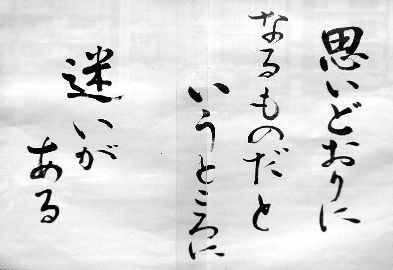 思いどおりに
なるものだと
いうところに
迷いが
ある